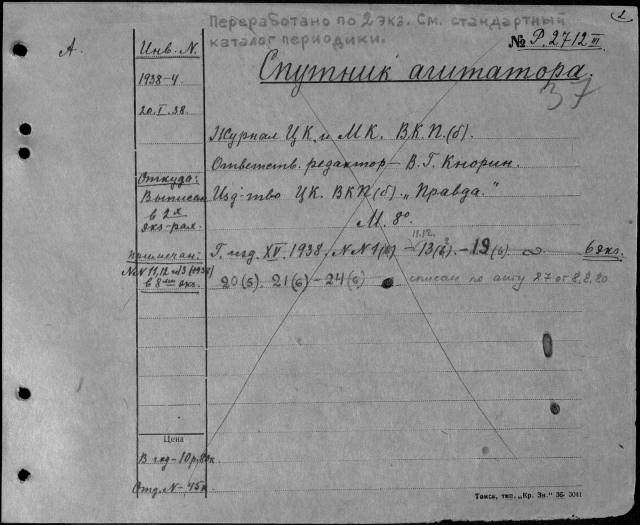 2.
Переработано по 2 экз. См. стандартный
каталог периодики.
А.
Инв. N
№ Р. 2712 III
Спутник агитатора.
37
1938-4
20.I.38.
Журнал ЦК. и МК. ВКП.(б).
Ответств. редактор – В. Г. Кнорин.
Откуда:
Выписан
в 2х
экз-рах.
Изд-тво ЦК. ВКП(б). „Правда."
М. 8°
Примечан:
Г. изд. XV. 1938, N N 1(6) – 13(6). – 19(6) 6 экз.
11.12.
N N 11, 12 и 13 (1938)
в 8ми экз.
20(5). 21(6) – 24(6) списан по акту 27 от 8.2.20
Цена
В год – 10р.80к
Отд. N –, 45к.
Томск, тип. „Кр. Зн." 36- 3041